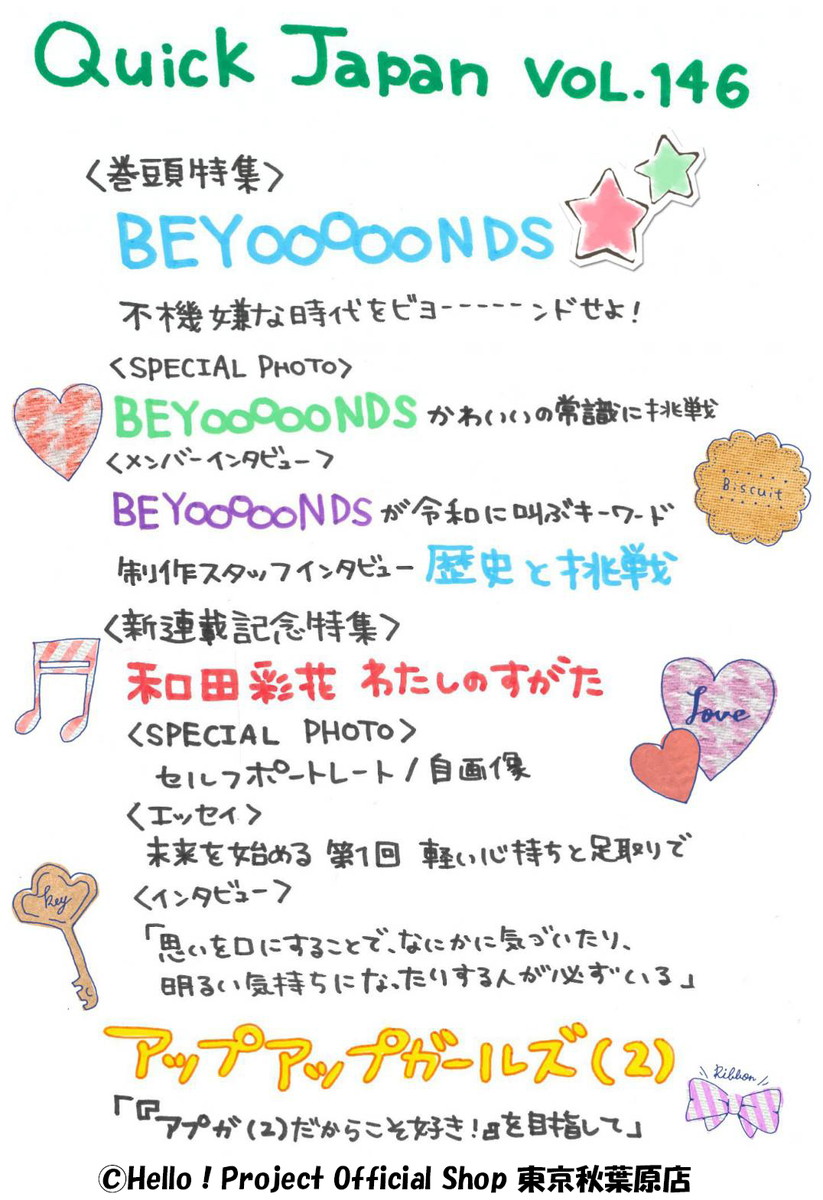 Quick Japan VOL.146
〈巻頭特集〉
BEYOOOOONDS
不機嫌な時代をビヨーーーーーンドせよ!
〈SPECIAL PHOTO〉
BEYOOOOONDS かわいいの常識に挑戦
〈メンバーインタビュー〉
BEYOOOOONDSが令和に叫ぶキーワード
制作スタッフインタビュー 歴史と挑戦
〈新連載記念特集〉
和田彩花 わたしのすがた
〈SPECIAL PHOTO〉
セルフポートレート/自画像
〈エッセイ〉
未来を始める 第1回 軽い心持ちと足取りで
〈インタビュー〉
「思いを口にすることで、なにかに気づいたり、
明るい気持ちになったりする人が必ずいる」
アップアップガールズ(2)
「『アプガ(2)だからこそ好き!』を目指して」
Biscuit
Love
key
Ribbon
©Hello!Project Official Shop 東京秋葉原店